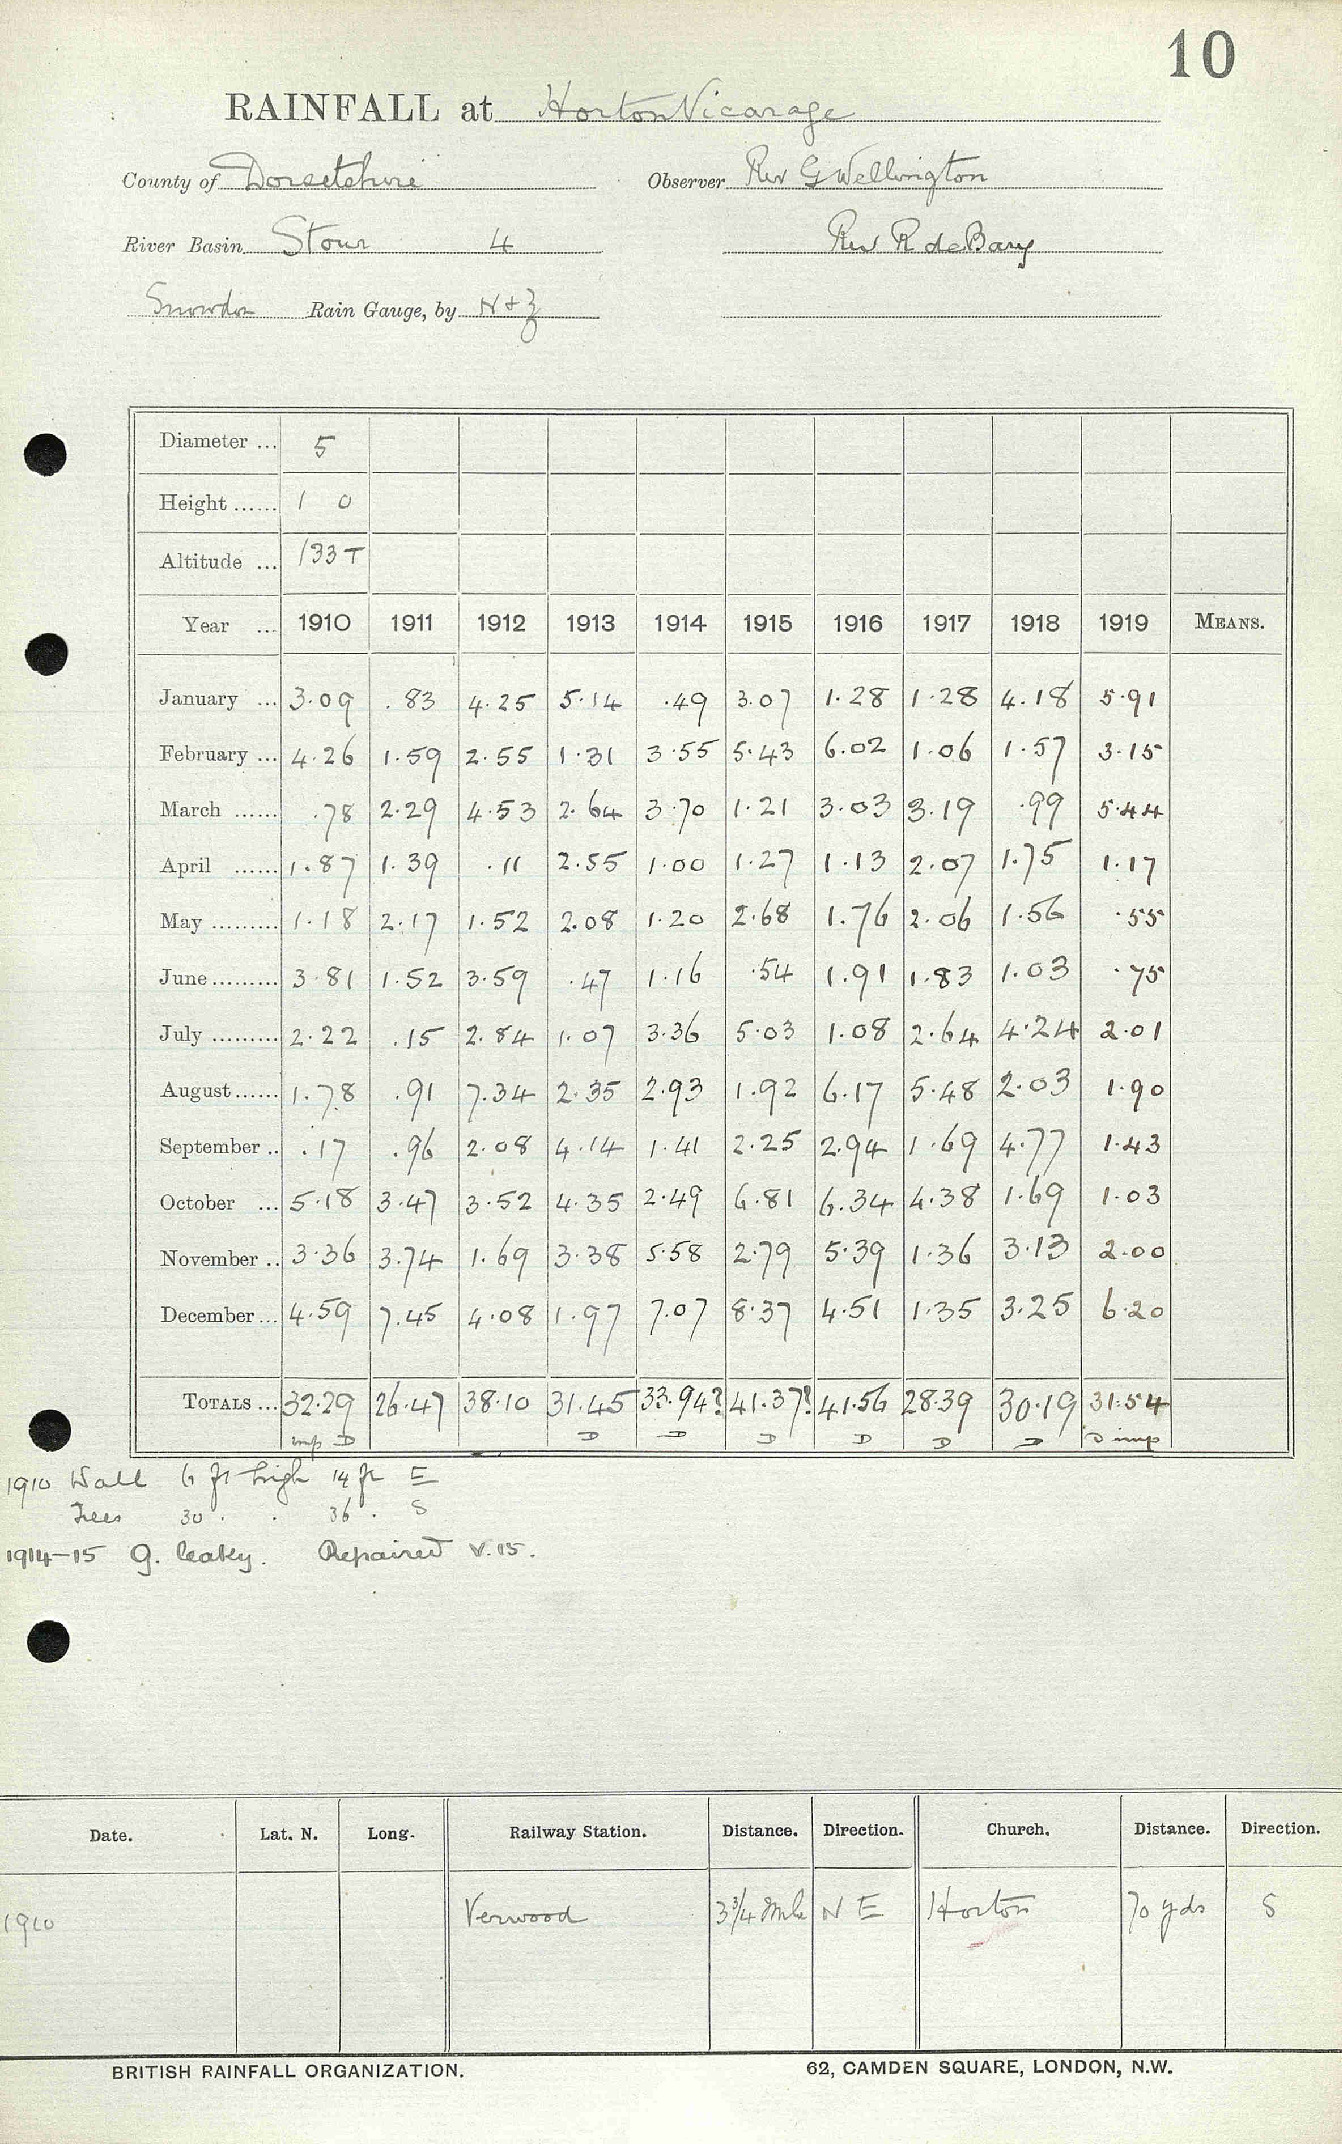 10
RAINFALL at Horton Vicarage
County of Dorsetshire Observer Rev G Wellington
River Basin Stour 4 Rev R de Bary
Snowdon Rain Gauge, by N + Z
Diameter ... 5
Height ...... 1 0
Altitude ... 133 T
Year ... 1910 1911 1912 1913 1914 1915 1916 1917 1918 1919 MEANS.
January ... 3.09 .83 4.25 5.14 .49 3.07 1.28 1.28 4.18 5.91
February ... 4.26 1.59 2.55 1.31 3.55 5.43 6.02 1.06 1.57 3.15
March ...... .78 2.29 4.53 2.64 3.70 1.21 3.03 3.19 .99 5.44
April ...... 1.87 1.39 .11 2.55 1.00 1.27 1.13 2.07 1.75 1.17
May ......... 1.18 2.17 1.52 2.08 1.20 2.68 1.76 2.06 1.56 .55
June ......... 3.81 1.52 3.59 .47 1.16 .54 1.91 1.83 1.03 .75
July ......... 2.22 .15 2.84 1.07 3.36 5.03 1.08 2.64 4.24 2.01
August ...... 1.78 .91 7.34 2.35 2.93 1.92 6.17 5.48 2.03 1.90
September .. .17 .96 2.08 4.14 1.41 2.25 2.94 1.69 4.77 1.43
October ... 5.18 3.47 3.52 4.35 2.49 6.81 6.34 4.38 1.69 1.03
November .. 3.36 3.74 1.69 3.38 5.58 2.79 5.39 1.36 3.13 2.00
December ... 4.59 7.45 4.08 1.97 7.07 8.37 4.51 1.35 3.25 6.20
TOTALS ... 32.29 26.47 38.10 31.45 33.94? 41.37? 41.56 28.39 30.19 31.54
imp D D D D D D D D imp
1910 Wall 6 ft high 14 ft E
Trees 30 . . 36 . S
1914-15 G. leaky. Repaired V.15.
Date. Lat. N. Long. Railway Station. Distance. Direction. Church. Distance. Direction.
1910 Verwood 3 3/4 Mile N E Horton 70 yds S
BRITISH RAINFALL ORGANIZATION. 62, CAMDEN SQUARE, LONDON, N.W.